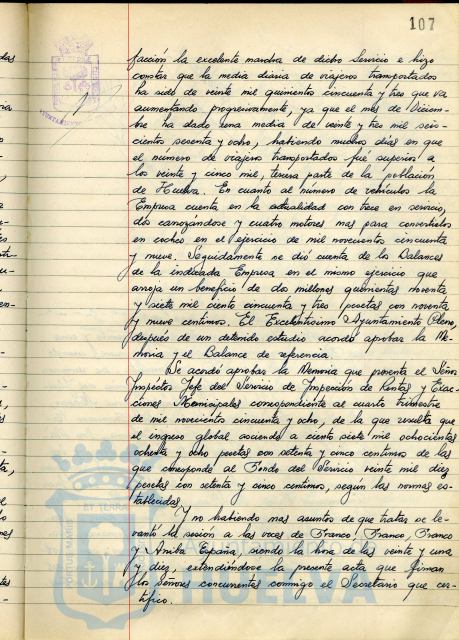 107
facción la excelente marcha de dicho Servicio e hizo
constar que la media diaria de viajeros transportados
ha sido de veinte mil quinientos cincuenta y tres que va
aumentando progresivamente, ya que el mes de Diciem-
bre ha dado una media de veinte y tres mil seis-
cientos sesenta y ocho, habiendo muchos días en que
el numero de viajeros transportados fué superior a
los veinte y cinco mil, tercera parte de la población
de Huelva. En cuanto al número de vehículos la
Empresa cuenta en la actualidad con trece en servicio,
dos carrozándose y cuatro motores mas para convertirlos
en coches en el ejercicio de mil novecientos cincuenta
y nueve. Seguidamente se dió cuenta de los Balances
de la indicada Empresa en el mismo ejercicio que
arroja un beneficio de dos millones quinientas noventa
y siete mil ciento cincuenta y tres pesetas con noventa
y nueve centimos. El Excelentísimo Ayuntamiento Pleno,
después de un detenido estudio acordó aprobar la Me-
moria y el Balance de referencia.
Se acordó aprobar la Memoria que presenta el Señor
Inspector Jefe del Servicio de Inspección de Rentas y Exac-
ciones Municipales correspondiente al cuarto trimestre
de mil novecientos cincuenta y ocho, de la que resulta que
el ingreso global asciende a ciento siete mil ochocientas
ochenta y ocho pesetas con setenta y cinco centimos de las
que corresponde al Fondo del Servicio veinte mil diez
pesetas con setenta y cinco centimos, según las normas es-
tablecidas.
Y no habiendo mas asuntos de que tratar se le-
vantó la sesión a las voces de Franco, Franco, Franco
y Arriba España, siendo la hora de las veinte y una
y diez, extendiéndose la presente acta que firman
los señores concurrentes conmigo el Secretario que cer-
tifico.